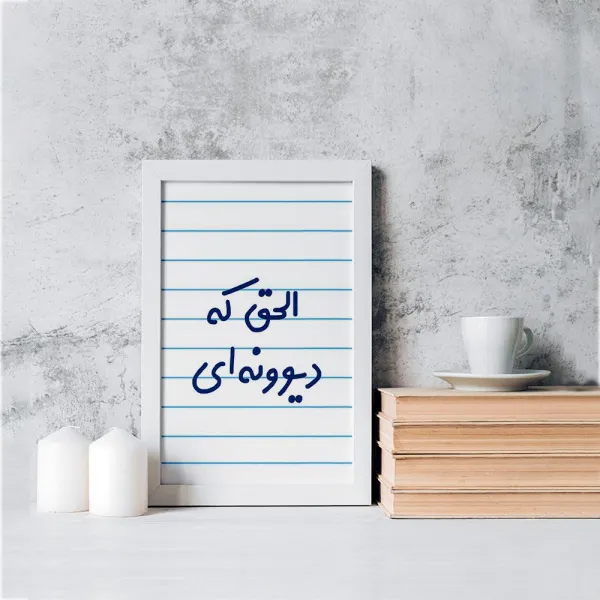 الحق که
دیوونه‌ای